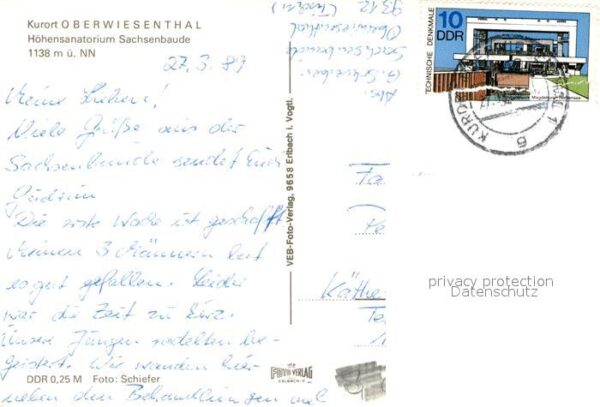 Kurort OBERWIESENTHAL
Höhensanatorium Sachsenbaude
1138 m ü. NN
27.3.89
Meine Lieben!
Viele Grüße aus der
Sachsenbaude sendet Euch
Gudrun
Die erste Woche ist geschafft
Meinen 3 Männern hat
es gut gefallen. Leider
war die Zeit zu kurz.
Unsere Jungen rodelten be-
geistert. Wir wandern hier
neben den Behandlungen viel
DDR 0,25 M Foto: Schiefer
VEB-Foto-Verlag, 9658 Erlbach i. Vogtl.
FOTO VERLAG
ERLBACH
Abs.
Sachsenbaude
Oberwiesenthal
9312
Fa
Käthe
TECHNISCHE DENKMALE
10
DDR
KURO
privacy protection
Datenschutz